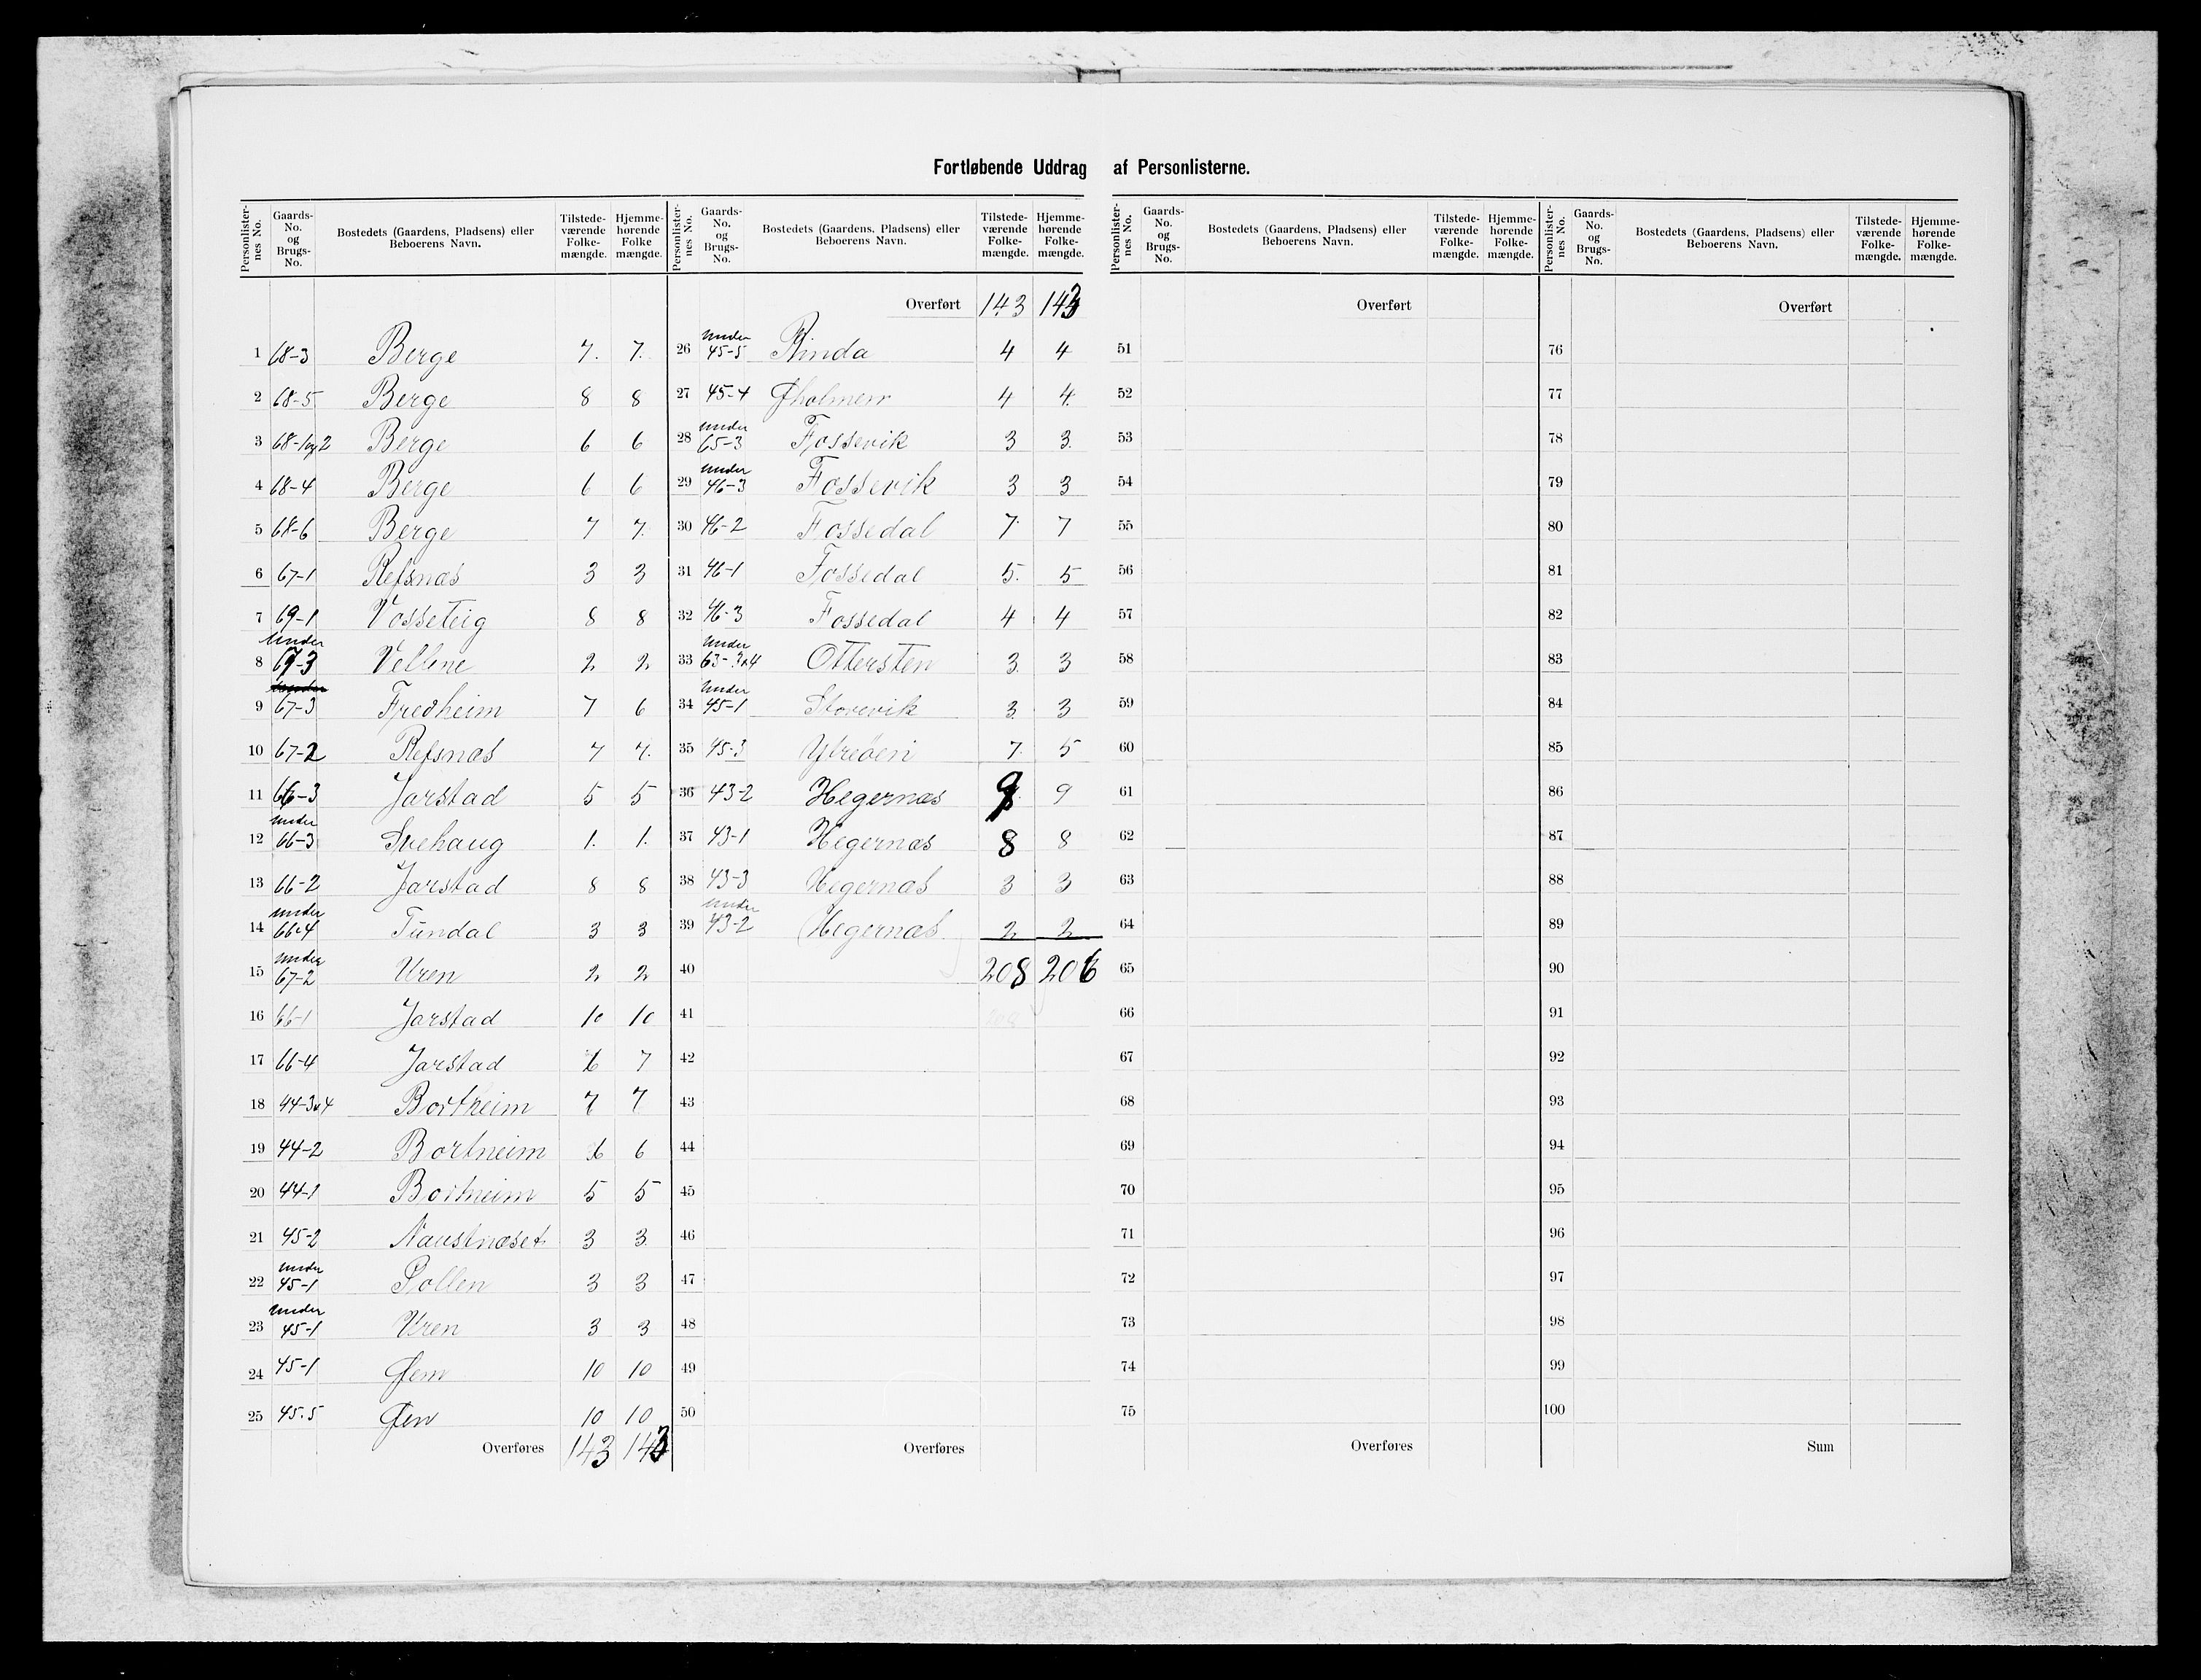 Fortløbende Uddrag af Personlisterne.
Personlister-nes No. | Gaards-No. og Brugs-No. | Bostedets (Gaardens, Pladsens) eller Beboerens Navn. | Tilstede-værende Folke-mængde. | Hjemme-hørende Folke mængde.
1 68-3 Berge 7. 7.
2 68-5 Berge 8 8
3 68-1og2 Berge 6 6
4 68-4 Berge 6 6
5 68-6 Berge 7 7.
6 67-1 Refsnæs 3 3
7 69-1 Vosseteig 8 8
8 Under 67-3 Vellene 2 2
9 67-3 Fredheim 7 6
10 67-2 Refsnæs 7 7.
11 66-3 Jarstad 5 5
12 under 66-3 Svehaug 1. 1.
13 66-2 Jarstad 8 8
14 under 66-4 Tundal 3 3
15 under 67-2 Uren 2 2
16 66-1 Jarstad 10 10
17 66-4 Jarstad 6 7
18 44-3&4 Bortheim 7 7
19 44-2 Bortheim 6 6
20 44-1 Bortheim 5 5
21 45-2 Naustnæset 3 3
22 under 45-1 Pollen 3 3
23 under 45-1 Uren 3 3
24 45-1 Øen 10 10
25 45-5 Øen 10 10
Overføres 143 143
Personlister-nes No. | Gaards-No. og Brugs-No. | Bostedets (Gaardens, Pladsens) eller Beboerens Navn. | Tilstede-værende Folke-mængde. | Hjemme-hørende Folke-mængde.
Overført 143 143
26 under 45-5 Rinda 4 4
27 45-4 Øholmen 4 4.
28 under 65-3 Fossevik 3 3.
29 under 46-3 Fossevik 3 3
30 46-2 Fossedal 7 7
31 46-1 Fossedal 5. 5
32 46-3 Fossedal 4 4
33 under 63-3&4 Ottersten 3. 3
34 under 45-1 Storevik 3. 3
35 45-3 Ytreøen 7. 5
36 43-2 Hegernæs 9 9
37 43-1 Hegernæs 8 8
38 43-3 Hegernæs 3 3
39 under 43-2 Hegernæs 2 2
40 208 206
41
42
43
44
45
46
47
48
49
50
Overføres
Personlister-nes No. | Gaards-No. og Brugs-No. | Bostedets (Gaardens, Pladsens) eller Beboerens Navn. | Tilstede-værende Folke-mængde. | Hjemme-hørende Folke-mængde.
Overført
51
52
53
54
55
56
57
58
59
60
61
62
63
64
65
66
67
68
69
70
71
72
73
74
75
Overføres
Personlister-nes No. | Gaards-No. og Brugs-No. | Bostedets (Gaardens, Pladsens) eller Beboerens Navn. | Tilstede-værende Folke-mængde. | Hjemme-hørende Folke-mængde.
Overført
76
77
78
79
80
81
82
83
84
85
86
87
88
89
90
91
92
93
94
95
96
97
98
99
100
Sum